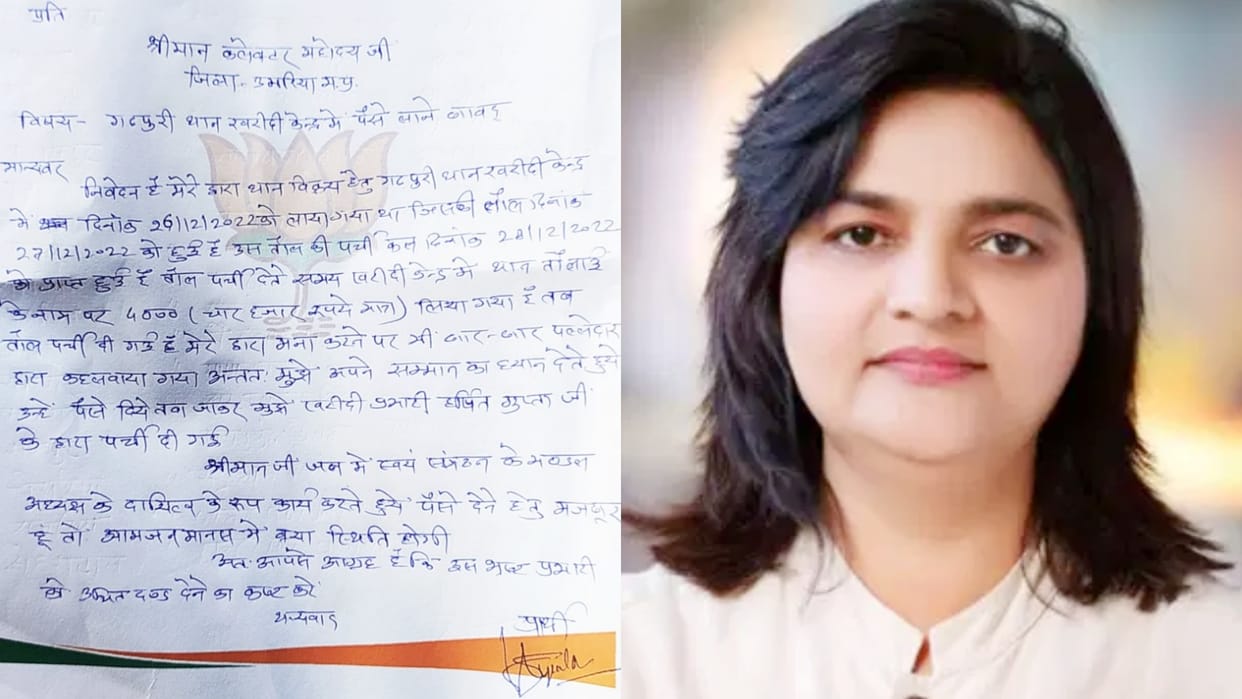 प्रति
श्रीमान कलेक्टर महोदय जी
जिला - उमरिया म.प्र.
विषय - गटपुरी धान खरीदी केन्द्र में पैसे लाने बावद्
मान्यवर
निवेदन है मेरे द्वारा धान विक्रय हेतु गटपुरी धान खरीदी केन्द्र
में दिनांक 26/12/2022 को लाया गया था जिसकी तौल दिनांक
27/12/2022 को हुई है उस तौल की पर्ची कल दिनांक 28/12/2022
को प्राप्त हुई है तौल पर्ची देते समय खरीदी केन्द्र में धान तौलाई
के नाम पर 4000 (चार हजार रुपये मात्र) लिया गया है तब
तौल पर्ची दी गई है मेरे द्वारा मना करने पर भी बार-बार पल्लेदार
द्वारा कहलवाया गया अन्ततः मुझे अपने सम्मान का ध्यान देते हुये
उन्हें पैसे दिये तब जाकर मुझे खरीदी प्रभारी हर्षित गुप्ता जी
के द्वारा पर्ची दी गई
श्रीमान जी जब में स्वयं संगठन के मण्डल
अध्यक्ष के दायित्व के रूप कार्य करते हुये पैसे देने हेतु मजबूर
हूं तो आमजनमानस में क्या स्थिति होगी
अतः आपसे आग्रह है कि इस भ्रष्ट प्रभारी
को उचित दण्ड देने का कष्ट करें
धन्यवाद
प्रार्थी